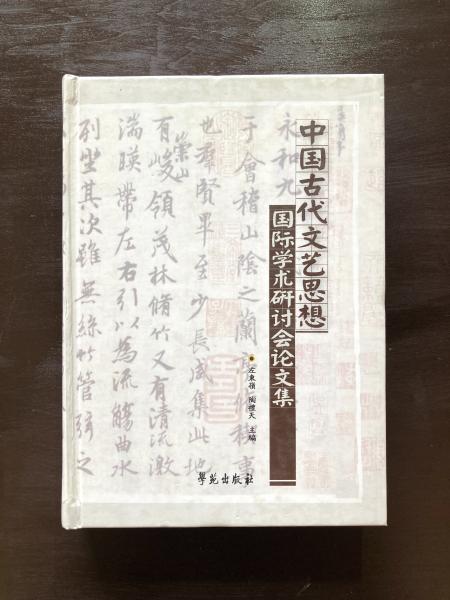 中国古代文艺思想
国际学术研讨会论文集
左東嶺 陶禮天 主編
學苑出版社
永和九
于會稽山陰之蘭
也羣賢畢至少長咸集此地
有崇山峻領茂林脩竹又有清流激
湍暎帶左右引以為流觴曲水
列坐其次雖無絲竹管弦之